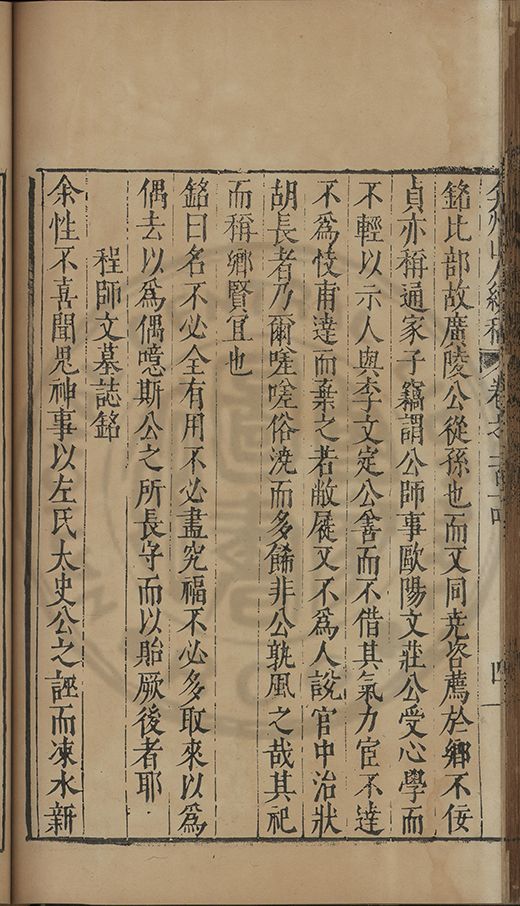 弇州山人續稿 卷之一百十四 四
銘比部故廣陵公從孫也而又同堯咨薦於鄉不佞
貞亦稱通家子竊謂公師事歐陽文莊公受心學而
不輕以示人與李文定公善而不借其氣力宦不達
不爲悽甫達而棄之若敝屣又不爲人說官中治狀
胡長者乃爾嗟嗟俗澆而多餙非公孰風之哉其祀
而稱鄉賢宜也
銘曰名不必全有用不必盡究福不必多取來以爲
偶去以爲偶噫斯公之所長守而以貽厥後者耶
程師文墓誌銘
余性不喜聞鬼神事以左氏太史公之誣而凍水新